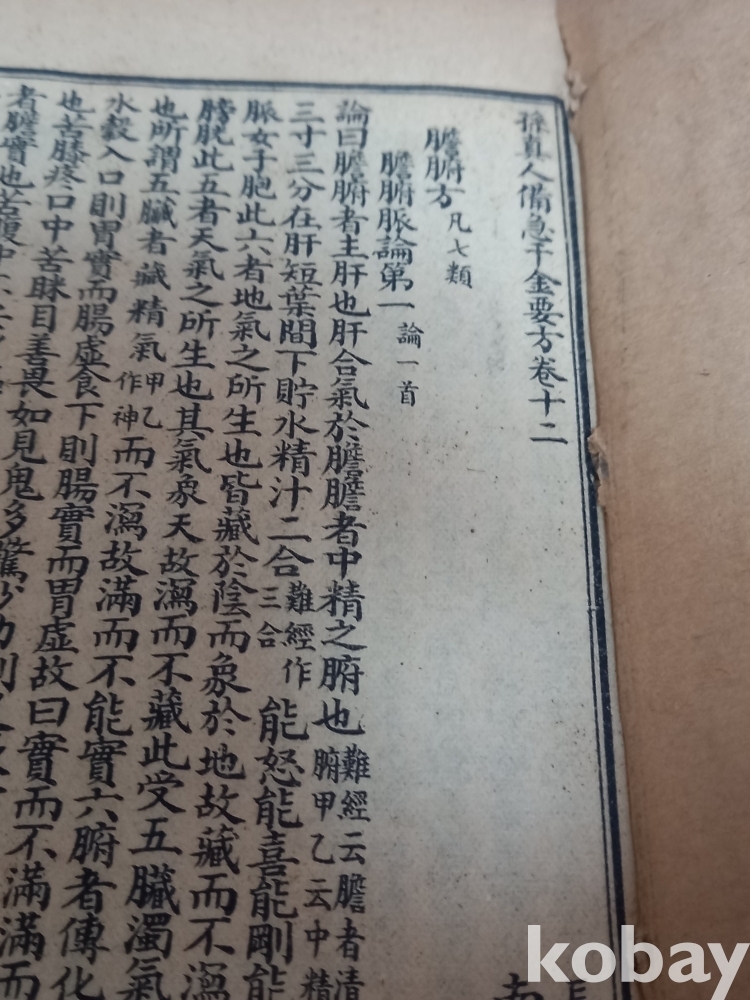 孫真人備急千金要方卷十二
膽腑方 凡七類
膽腑脈論第一 論一首
論曰膽腑者主肝也肝合氣於膽膽者中精之腑也 難經云膽者清 腑甲乙云中精
三寸三分在肝短葉間下貯水精汁二合 難經作 三合 能怒能喜能剛能
脈女子胞此六者地氣之所生也皆藏於陰而象於地故藏而不瀉
膀胱此五者天氣之所生也其氣象天故瀉而不藏此受五臟濁氣
也所謂五臟者藏精氣 甲乙 作神 而不瀉故滿而不能實六腑者傳化
水穀入口則胃實而腸虛食下則腸實而胃虛故曰實而不滿滿而
也苦膝疼口中苦眯目善畏如見鬼多驚少力
者膽實也苦腹中
kobay